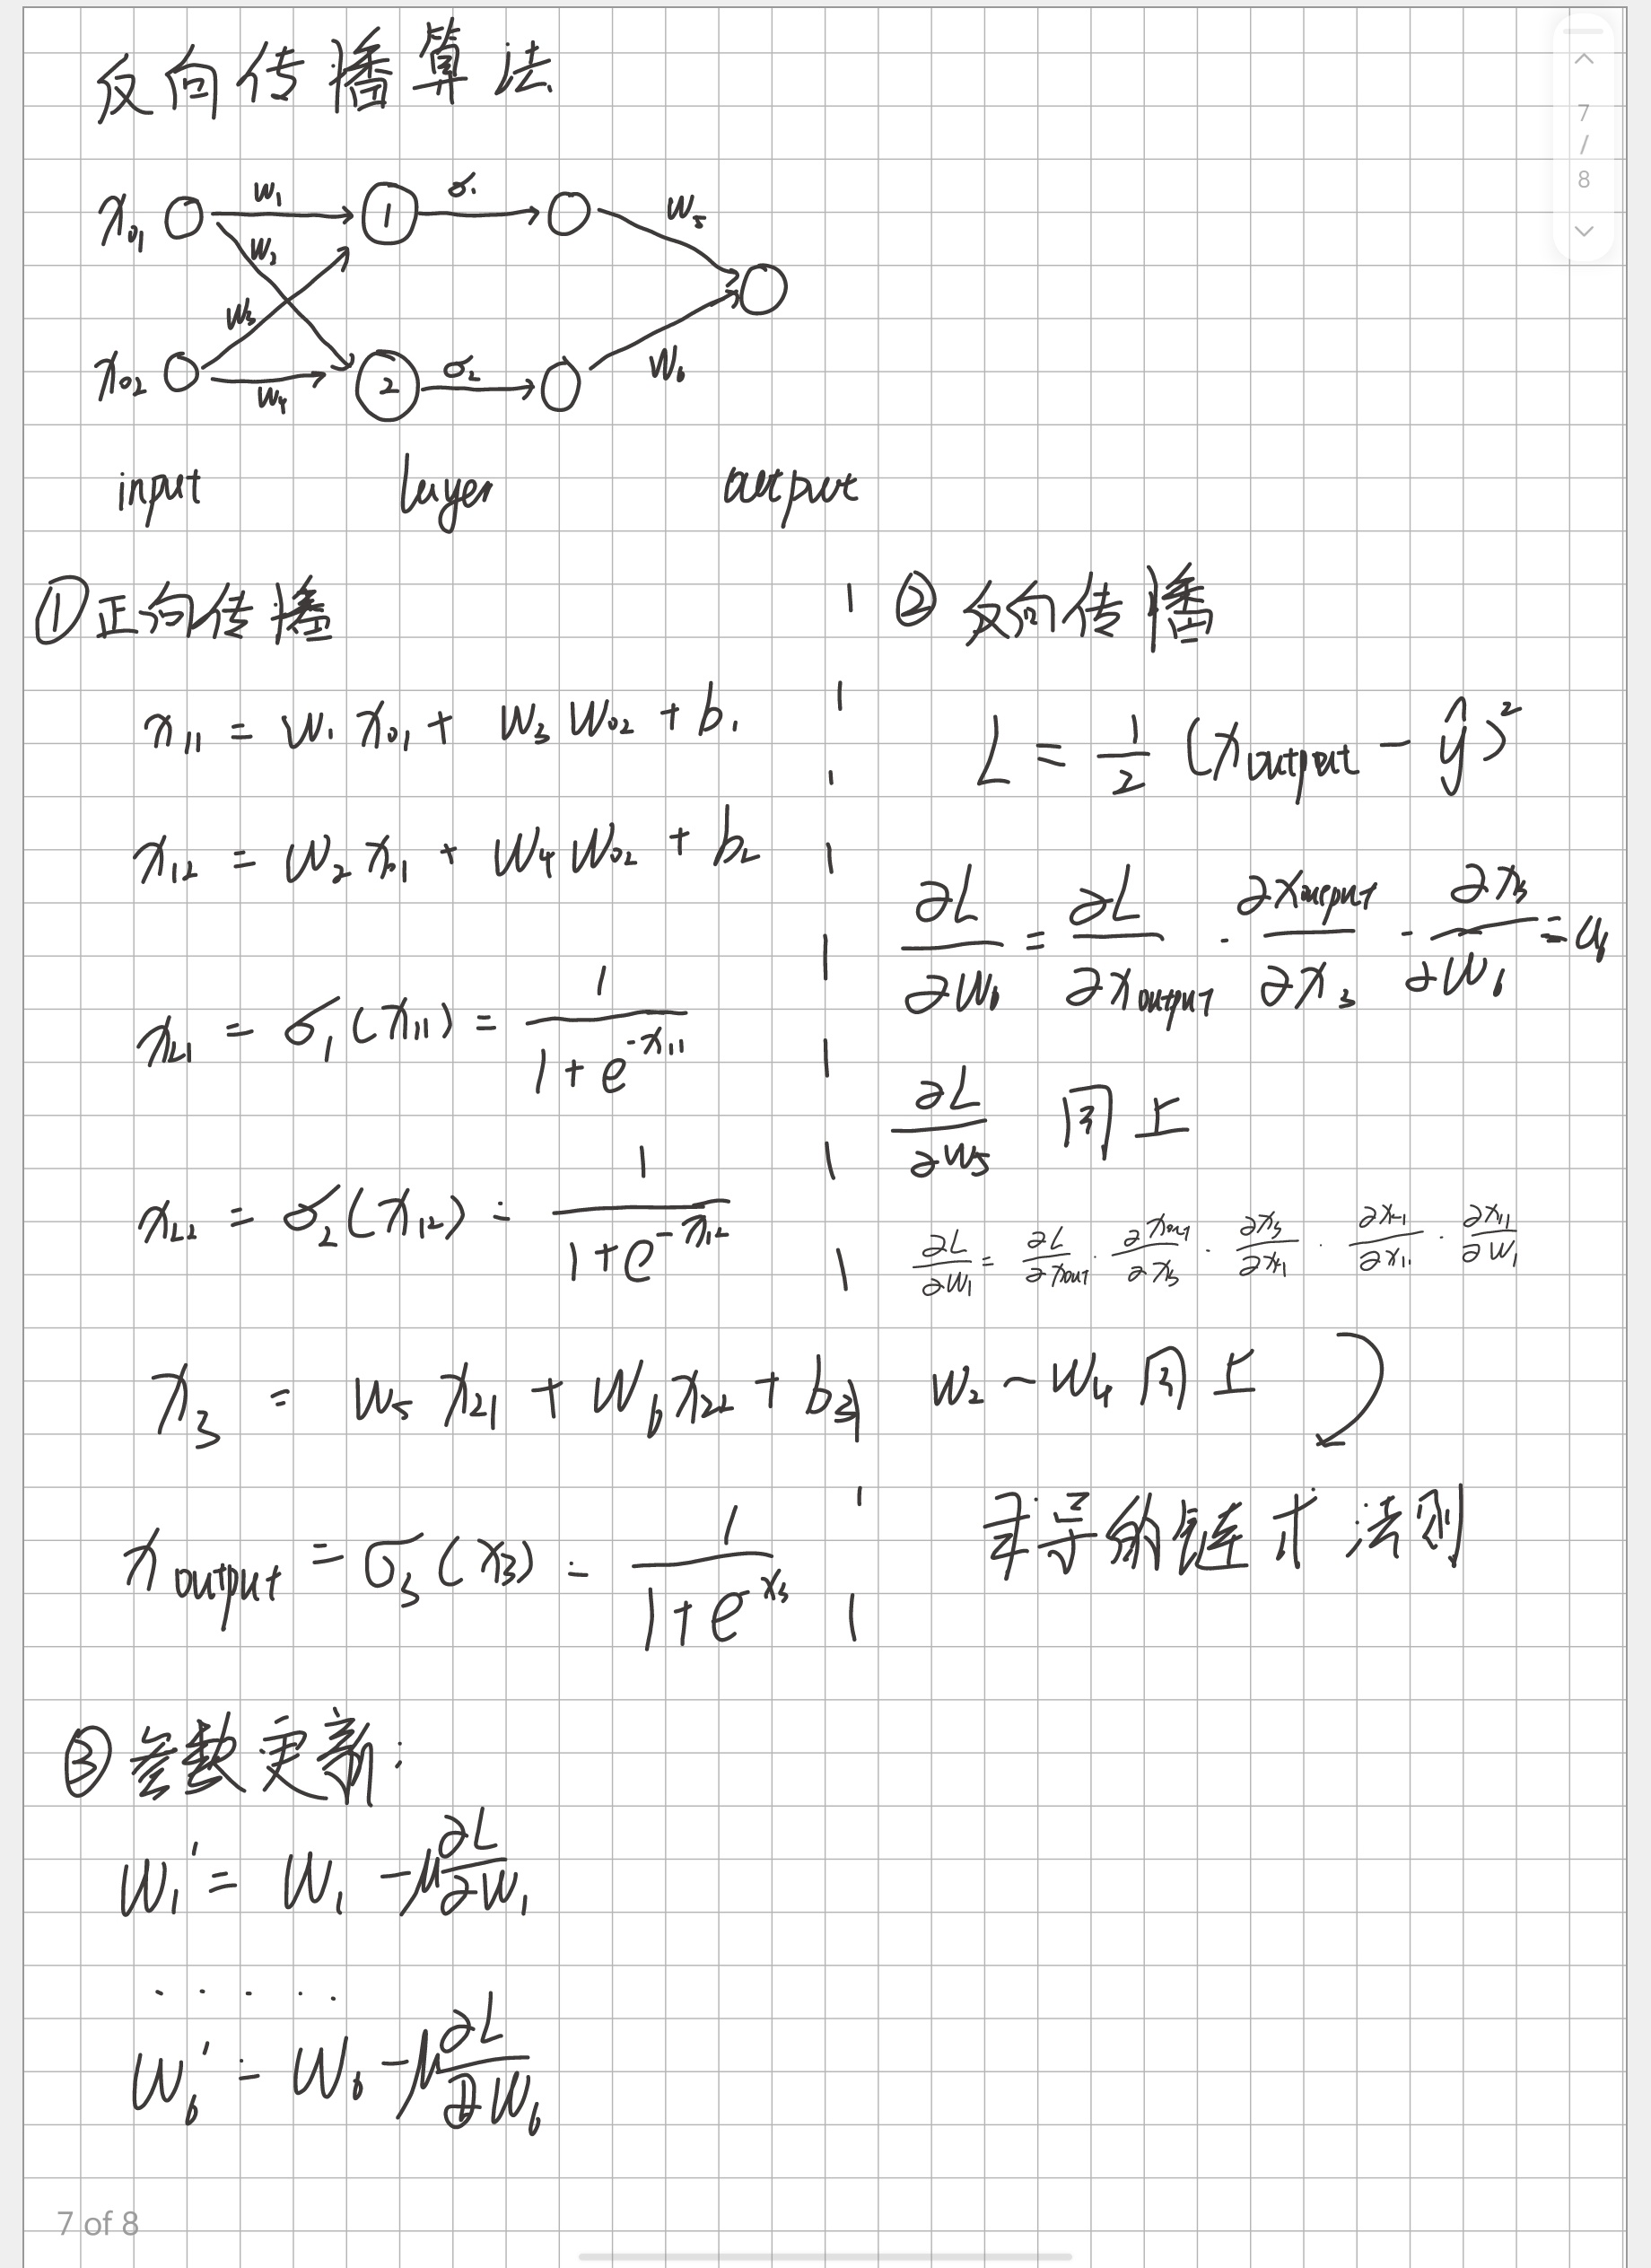 反向传播算法
x₀₁ w₁ 1 σ₁ w₅
w₂
w₃
x₀₂ w₄ 2 σ₂ w₆
input layer output
①正向传播
x₁₁ = w₁x₀₁ + w₃w₀₂ + b₁
x₁₂ = w₂x₀₁ + w₄w₀₂ + b₂
x₂₁ = σ₁(x₁₁) = 1/(1+e^(-x₁₁))
x₂₂ = σ₂(x₁₂) = 1/(1+e^(-x₁₂))
x₃ = w₅x₂₁ + w₆x₂₂ + b₃
x_output = σ₃(x₃) = 1/(1+e^(-x₃))
②反向传播
L = 1/2 (x_output - ŷ)²
∂L/∂w₆ = ∂L/∂x_output · ∂x_output/∂x₃ · ∂x₃/∂w₆ =
∂L/∂w₅ 同上
∂L/∂w₁ = ∂L/∂x_out · ∂x_out/∂x₃ · ∂x₃/∂x₂₁ · ∂x₂₁/∂x₁₁ · ∂x₁₁/∂w₁
w₂ ~ w₄ 同上
求导的链式法则
③参数更新:
w₁' = w₁ - μ ∂L/∂w₁
. . . . .
w₆' = w₆ - μ ∂L/∂w₆
7
/
8
7 of 8